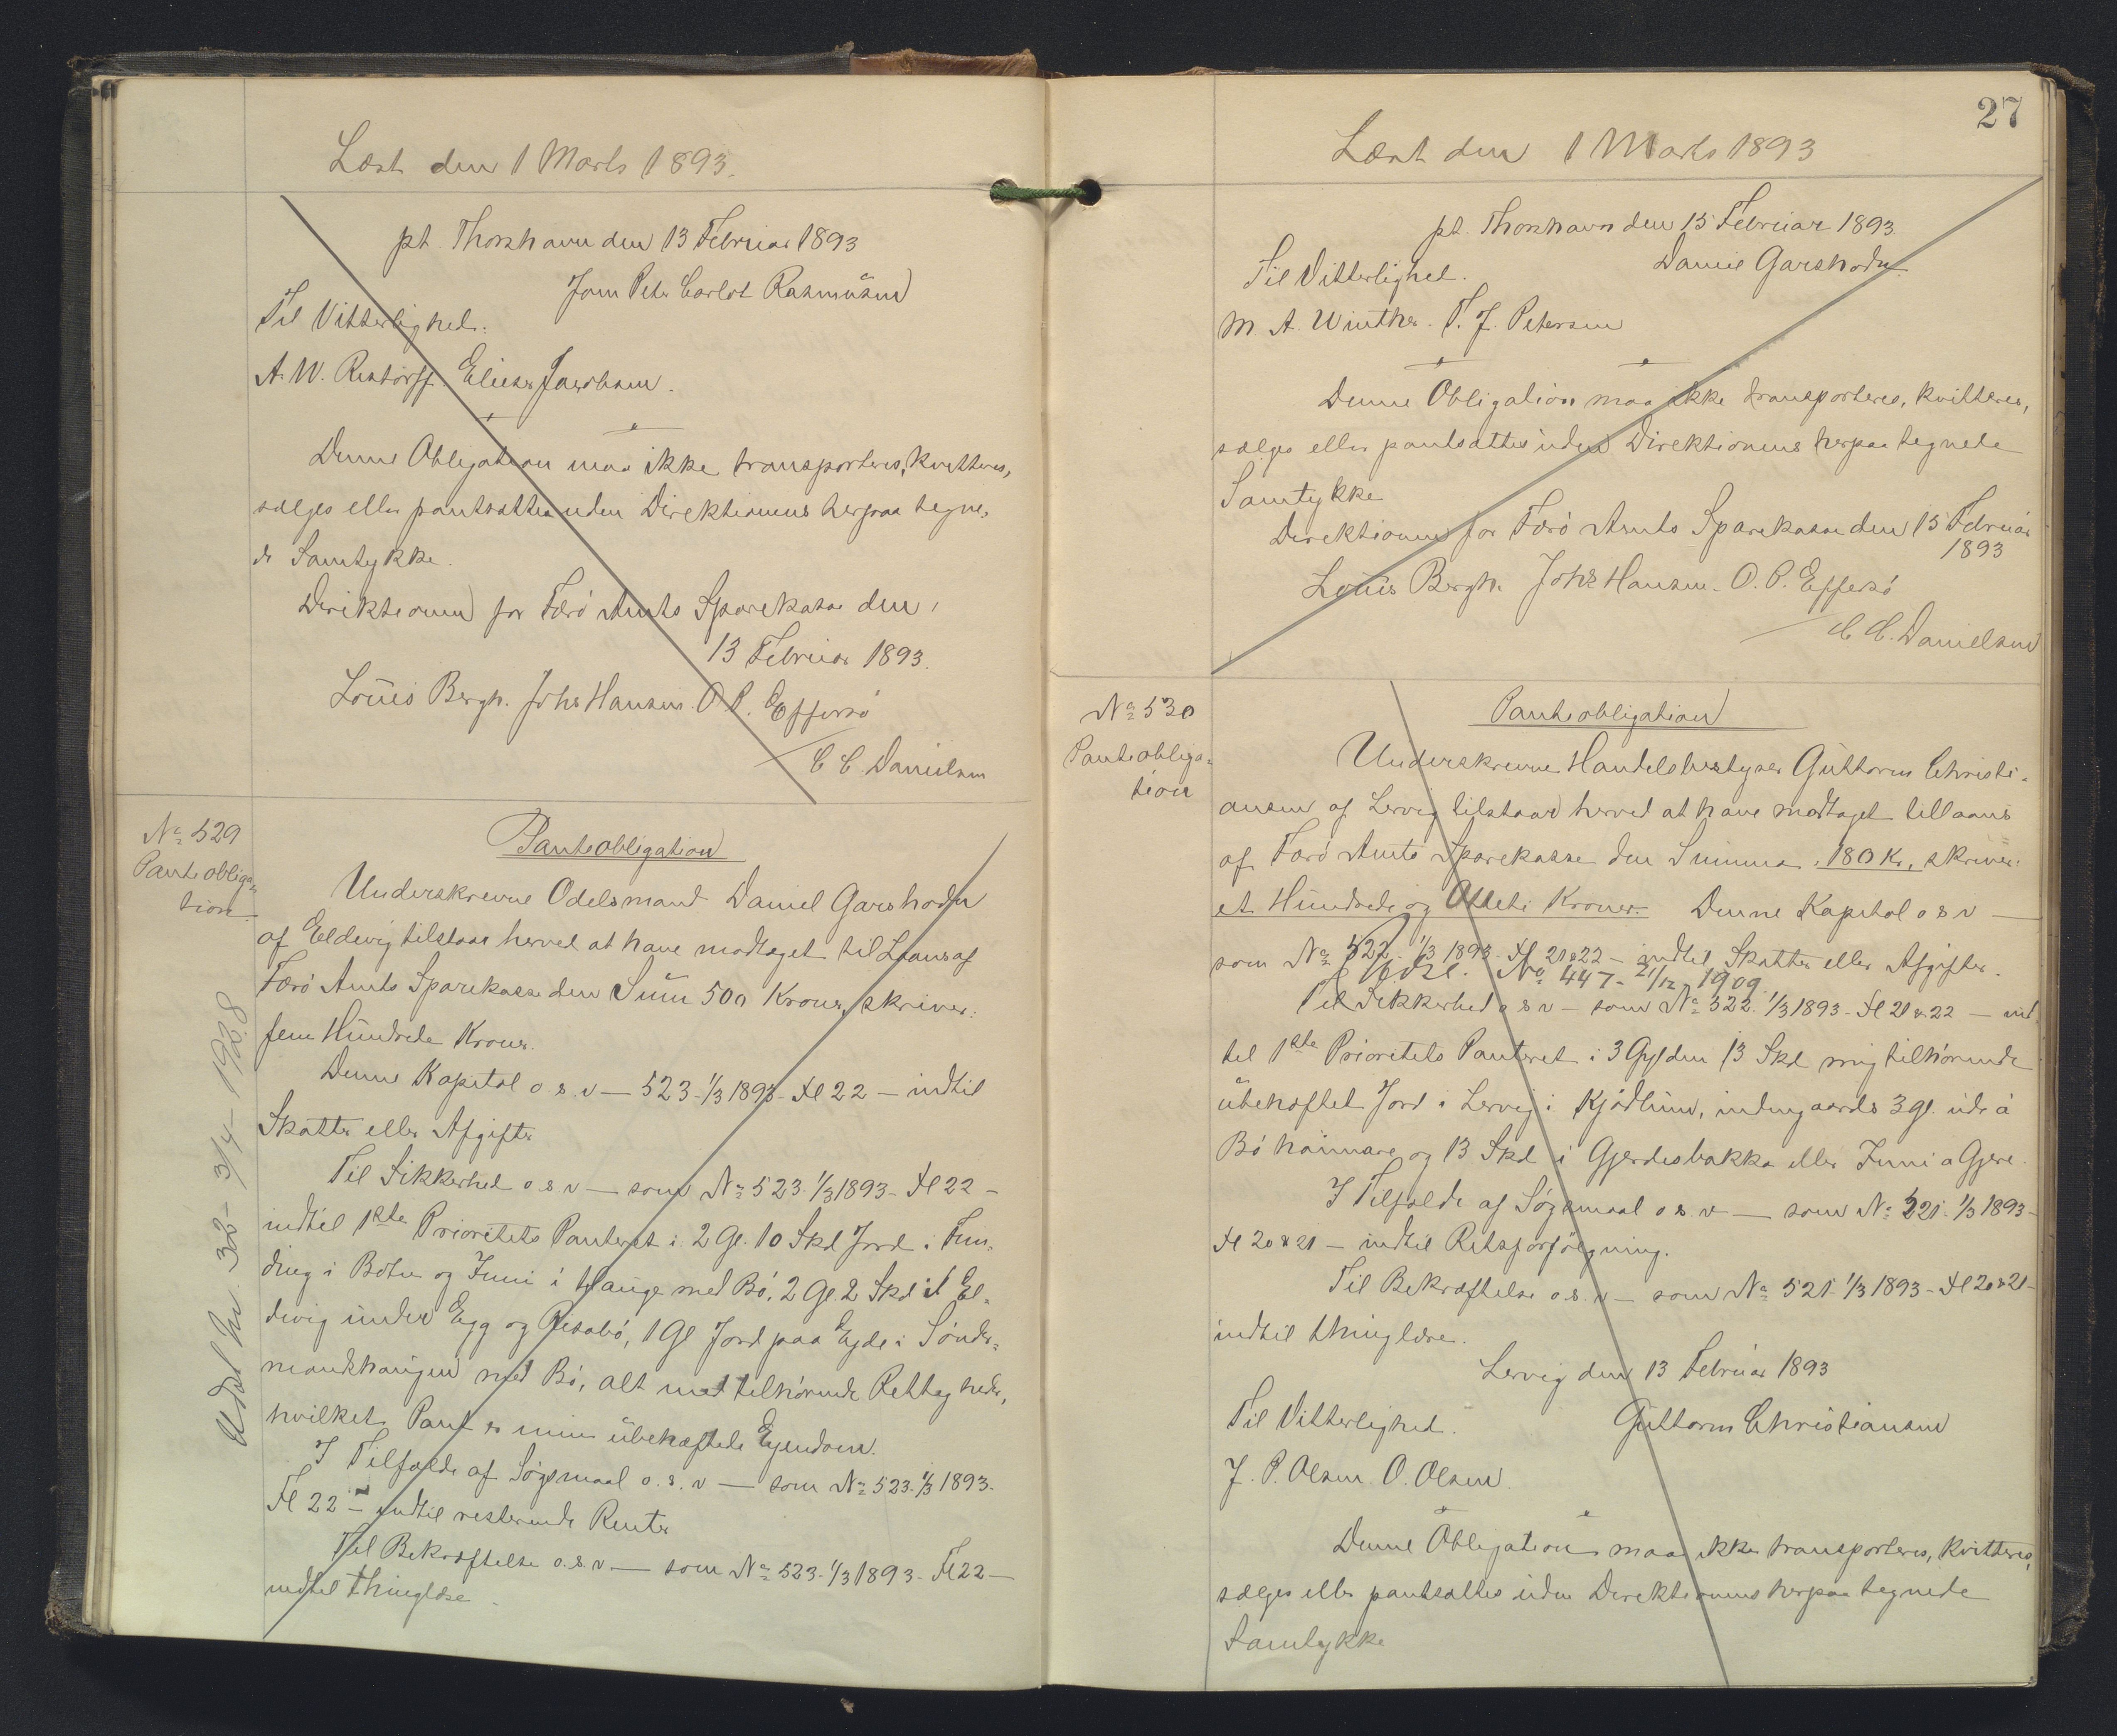 Læst den 1 Marts 1893.
pt. Thorshavn den 13 Februar 1893
Joen Peter Carlot Rasmüsen
Til Vitterlighed.
A. W. Restorff. Elieser Jacobsen.
Denne Obligation maa ikke transporteres, kvitteres,
sælges eller pantsættes uden Direktionens herpaa tegne-
de Samtykke.
Direktionen for Færö Amts Sparekasse den
13 Februar 1893.
Louis Bergh. Johs Hansen. O. P. Effersö
C C. Danielsen
No 529
Panteobliga-
tion
Panteobligation
Underskrevne Odelsmand Daniel Garshodn
af Eldevig tilstaar herved at have modtaget til Laans af
Færö Amts Sparekasse den Sum 500 Kroner, skriver:
fem Hundrede Kroner.
Denne Kapital o. s. v — 523 - 1/3 1893 - Fl 22 — indtil
Skatter eller Afgifter
Til Sikkerhed o s v — som No 523. 1/3 1893 - Fl 22 -
indtil 1ste Prioritets Panteret i 2 Gl. 10 Skd Jord i Fun-
ding i Botni og Inni i Hauge med Bö, 2 Gl. 2 Skd i El-
devig under Egg og Resabö, 1 Gl Jord paa Ejde i Sönder-
mandshaugen med Bö, alt med tilhörende Rettigheder,
hvilket Pant er min ubehæftede Ejendom.
I Tilfælde af Søgsmaal o. s. v — som No 523. 1/3 1893.
Fl 22 — indtil resterende Renter
Til Bekræftelse o. s. v. — som No 523. 1/3 1893. Fl 22 —
indtil thinglæse.
Udsl. No. 32 - 3/4 - 1928
27
Læst den 1 Marts 1893
pt. Thorshavn den 15 Februar 1893
Daniel Garshodn
Til Vitterlighed.
M. A. Winther. P. J. Petersen
Denne Obligation maa ikke transporteres, kvitteres,
sælges eller pantsættes uden Direktionens herpaa tegnede
Samtykke
Direktionen for Færö Amts Sparekasse den 15 Februar
1893
Louis Bergh. Johs Hansen. O. P. Effersö
C C. Danielsen
No 530
Panteobliga-
tion
Panteobligation
Underskrevne Handelsbestyrer Guttorm Christi-
ansen af Lervig tilstaar herved at have modtaget tillaans
af Færö Amts Sparekasse den Summa 180 Kr., skriver:
et Hundrede og Otteti Kroner. Denne Kapital o s v —
som No 522. 1/3 1893. Fl 21 & 22 — indtil Skatter eller Afgifter.
Udsl. No 447 - 21/12 - 1909.
Til Sikkerhed o s v — som No 522. 1/3 1893 - Fl 21 & 22 — ind
til 1ste Prioritets Panteret i 3 Gylden 13 Skd mig tilhörende
ubehæftet Jord i Lervig i Kjödlum, indengaards 3 gl. ude á
Bö haimare og 13 Skd i Gjerdesbakka eller Inni a Gjere.
I Tilfælde af Søgsmaal o s. v — som No 521. 1/3 1893 -
Fl 20 & 21 — indtil Retsforfölgning.
Til Bekræftelse o. s. v — som No 521. 1/3 1893 - Fl 20 & 21 -
indtil thinglæse.
Lervig den 13 Februar 1893
Til Vitterlighed.
Guttorm Christiansen
J. P. Olsen. O. Olsen
Denne Obligation maa ikke transporteres, kvitteres,
sælges eller pantsættes uden Direktionens herpaa tegnede
Samtykke